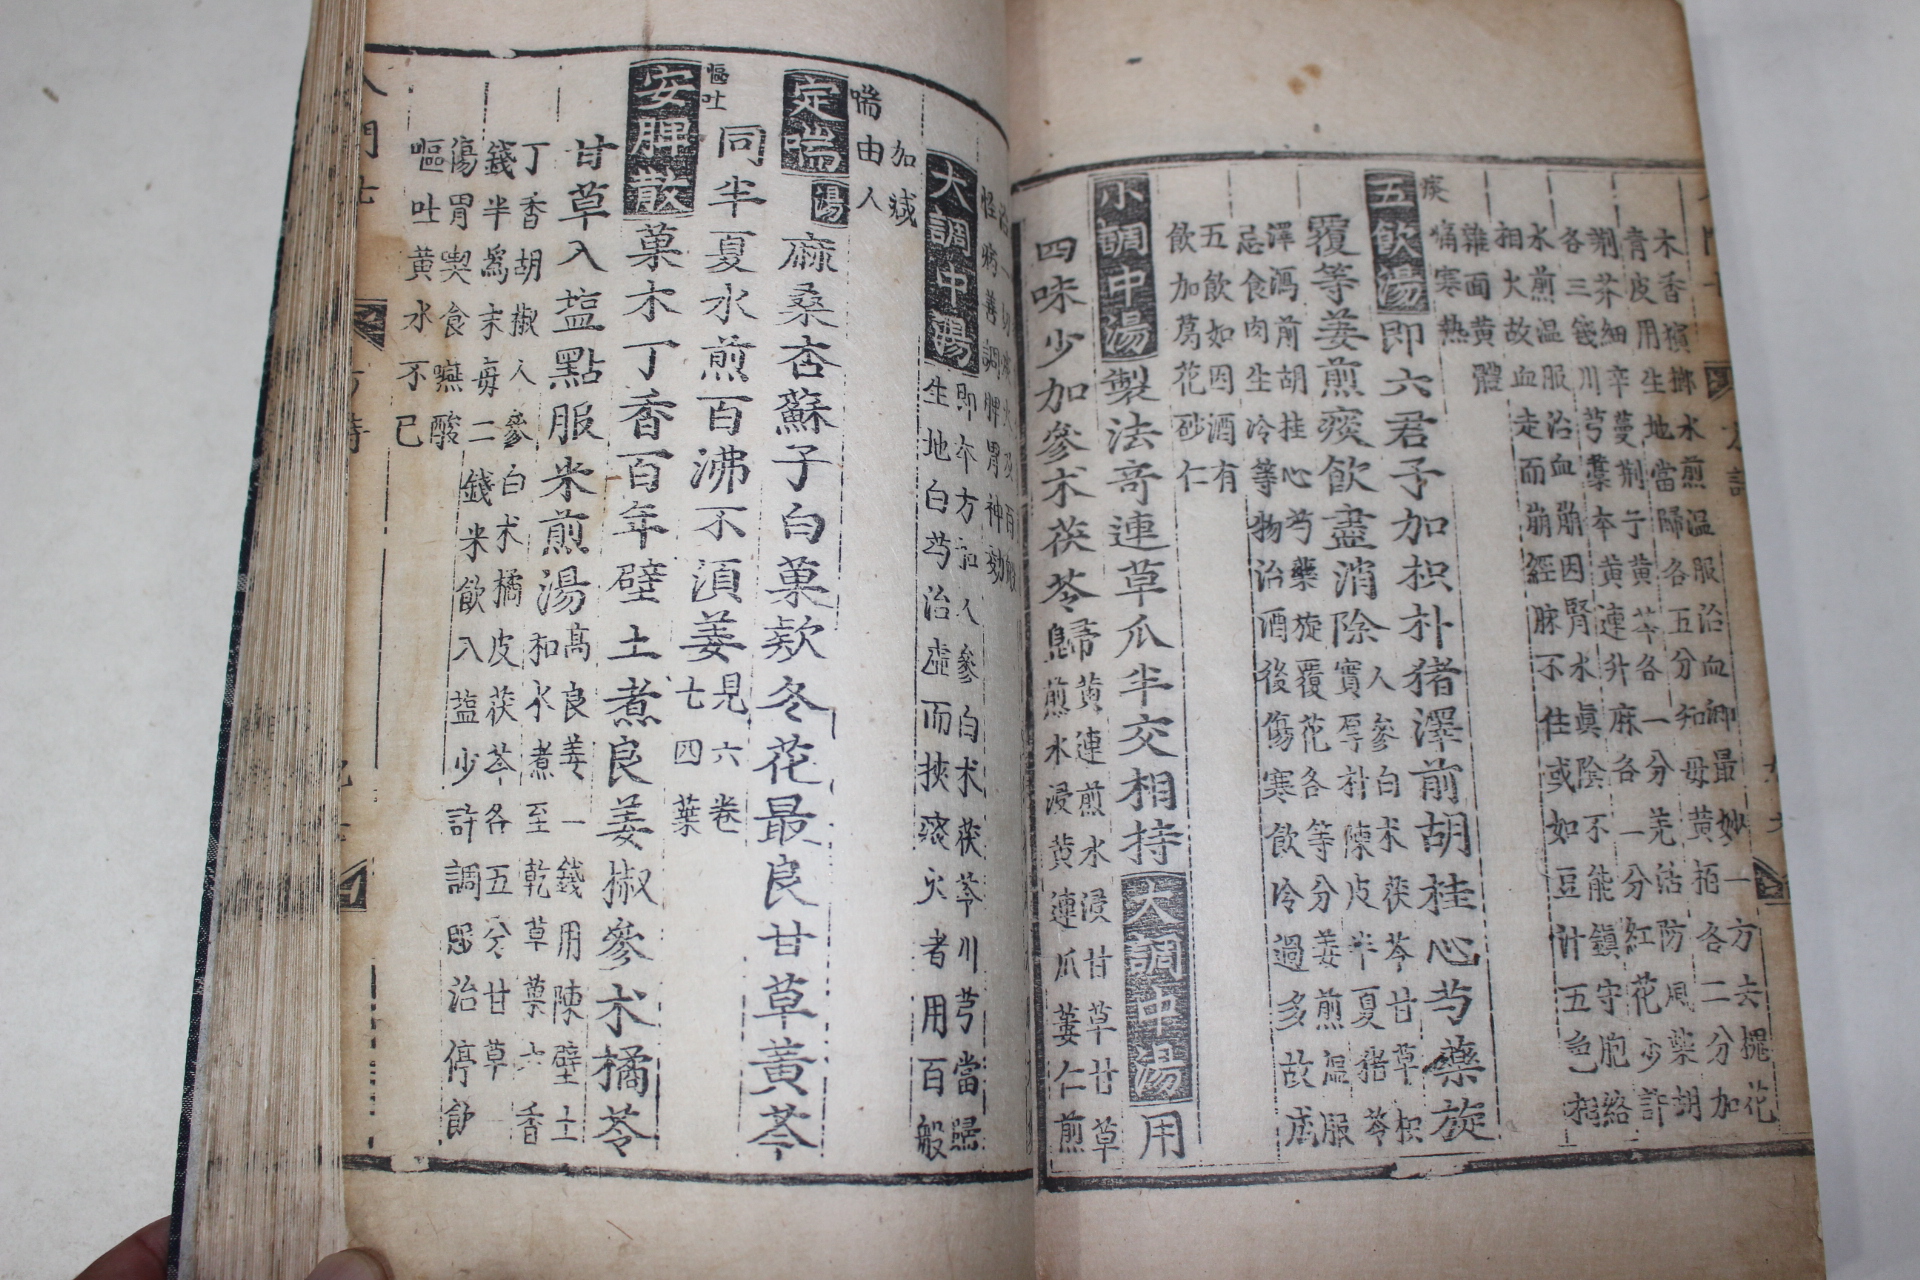 木香檳榔水煎温服治血衄最妙一方去槐花
青皮用生地當歸各五分知母黄栢各二分加
荆芥細辛蔓荆子黄芩各一分羌活防風柴胡
各三錢川芎藁本黄連升麻各一分紅花少許
水煎温服治血崩因腎水眞陰不能鎮守胞絡
相火故血走而崩經脉不住或如豆汁五色相
雜面黄體
痛寒熱
痰
五飲湯即六君子加枳朴猪澤前胡桂心芍藥旋
覆等姜煎痰飲盡消除
人參白术茯苓甘草枳
實厚朴陳皮半夏猪苓
澤瀉前胡桂心芍藥旋覆花各等分姜煎温服
忌食肉生冷等物治酒後傷寒飲冷過多故成
五飲如因酒有
飲加葛花砂仁
小調中湯製法奇連草瓜半交相持大調中湯用
四味少加參术茯苓歸
黄連煎水浸甘草甘草
煎水浸黄連瓜蔞仁煎
治一切痰火及百般
怪病善調脾胃神効
大調中湯
即本方加人參白术茯苓川芎當歸
生地白芍治虛而挾痰火者用百般
加減
喘由人
定喘湯麻桑杏蘇子白菓欵冬花最良甘草黃芩
同半夏水煎百沸不湏姜
見六卷
七四葉
嘔吐
安脾散菓木丁香百年壁土煮良姜椒參朮橘苓
甘草入塩點服米煎湯
高良姜一錢用陳壁土
和水煮至乾草菓木香
丁香胡椒人參白术橘皮茯苓各五分甘草一
錢半爲末每二錢米飲入塩少許調服治停飮
傷胃喫食嚥酸
嘔吐黄水不已